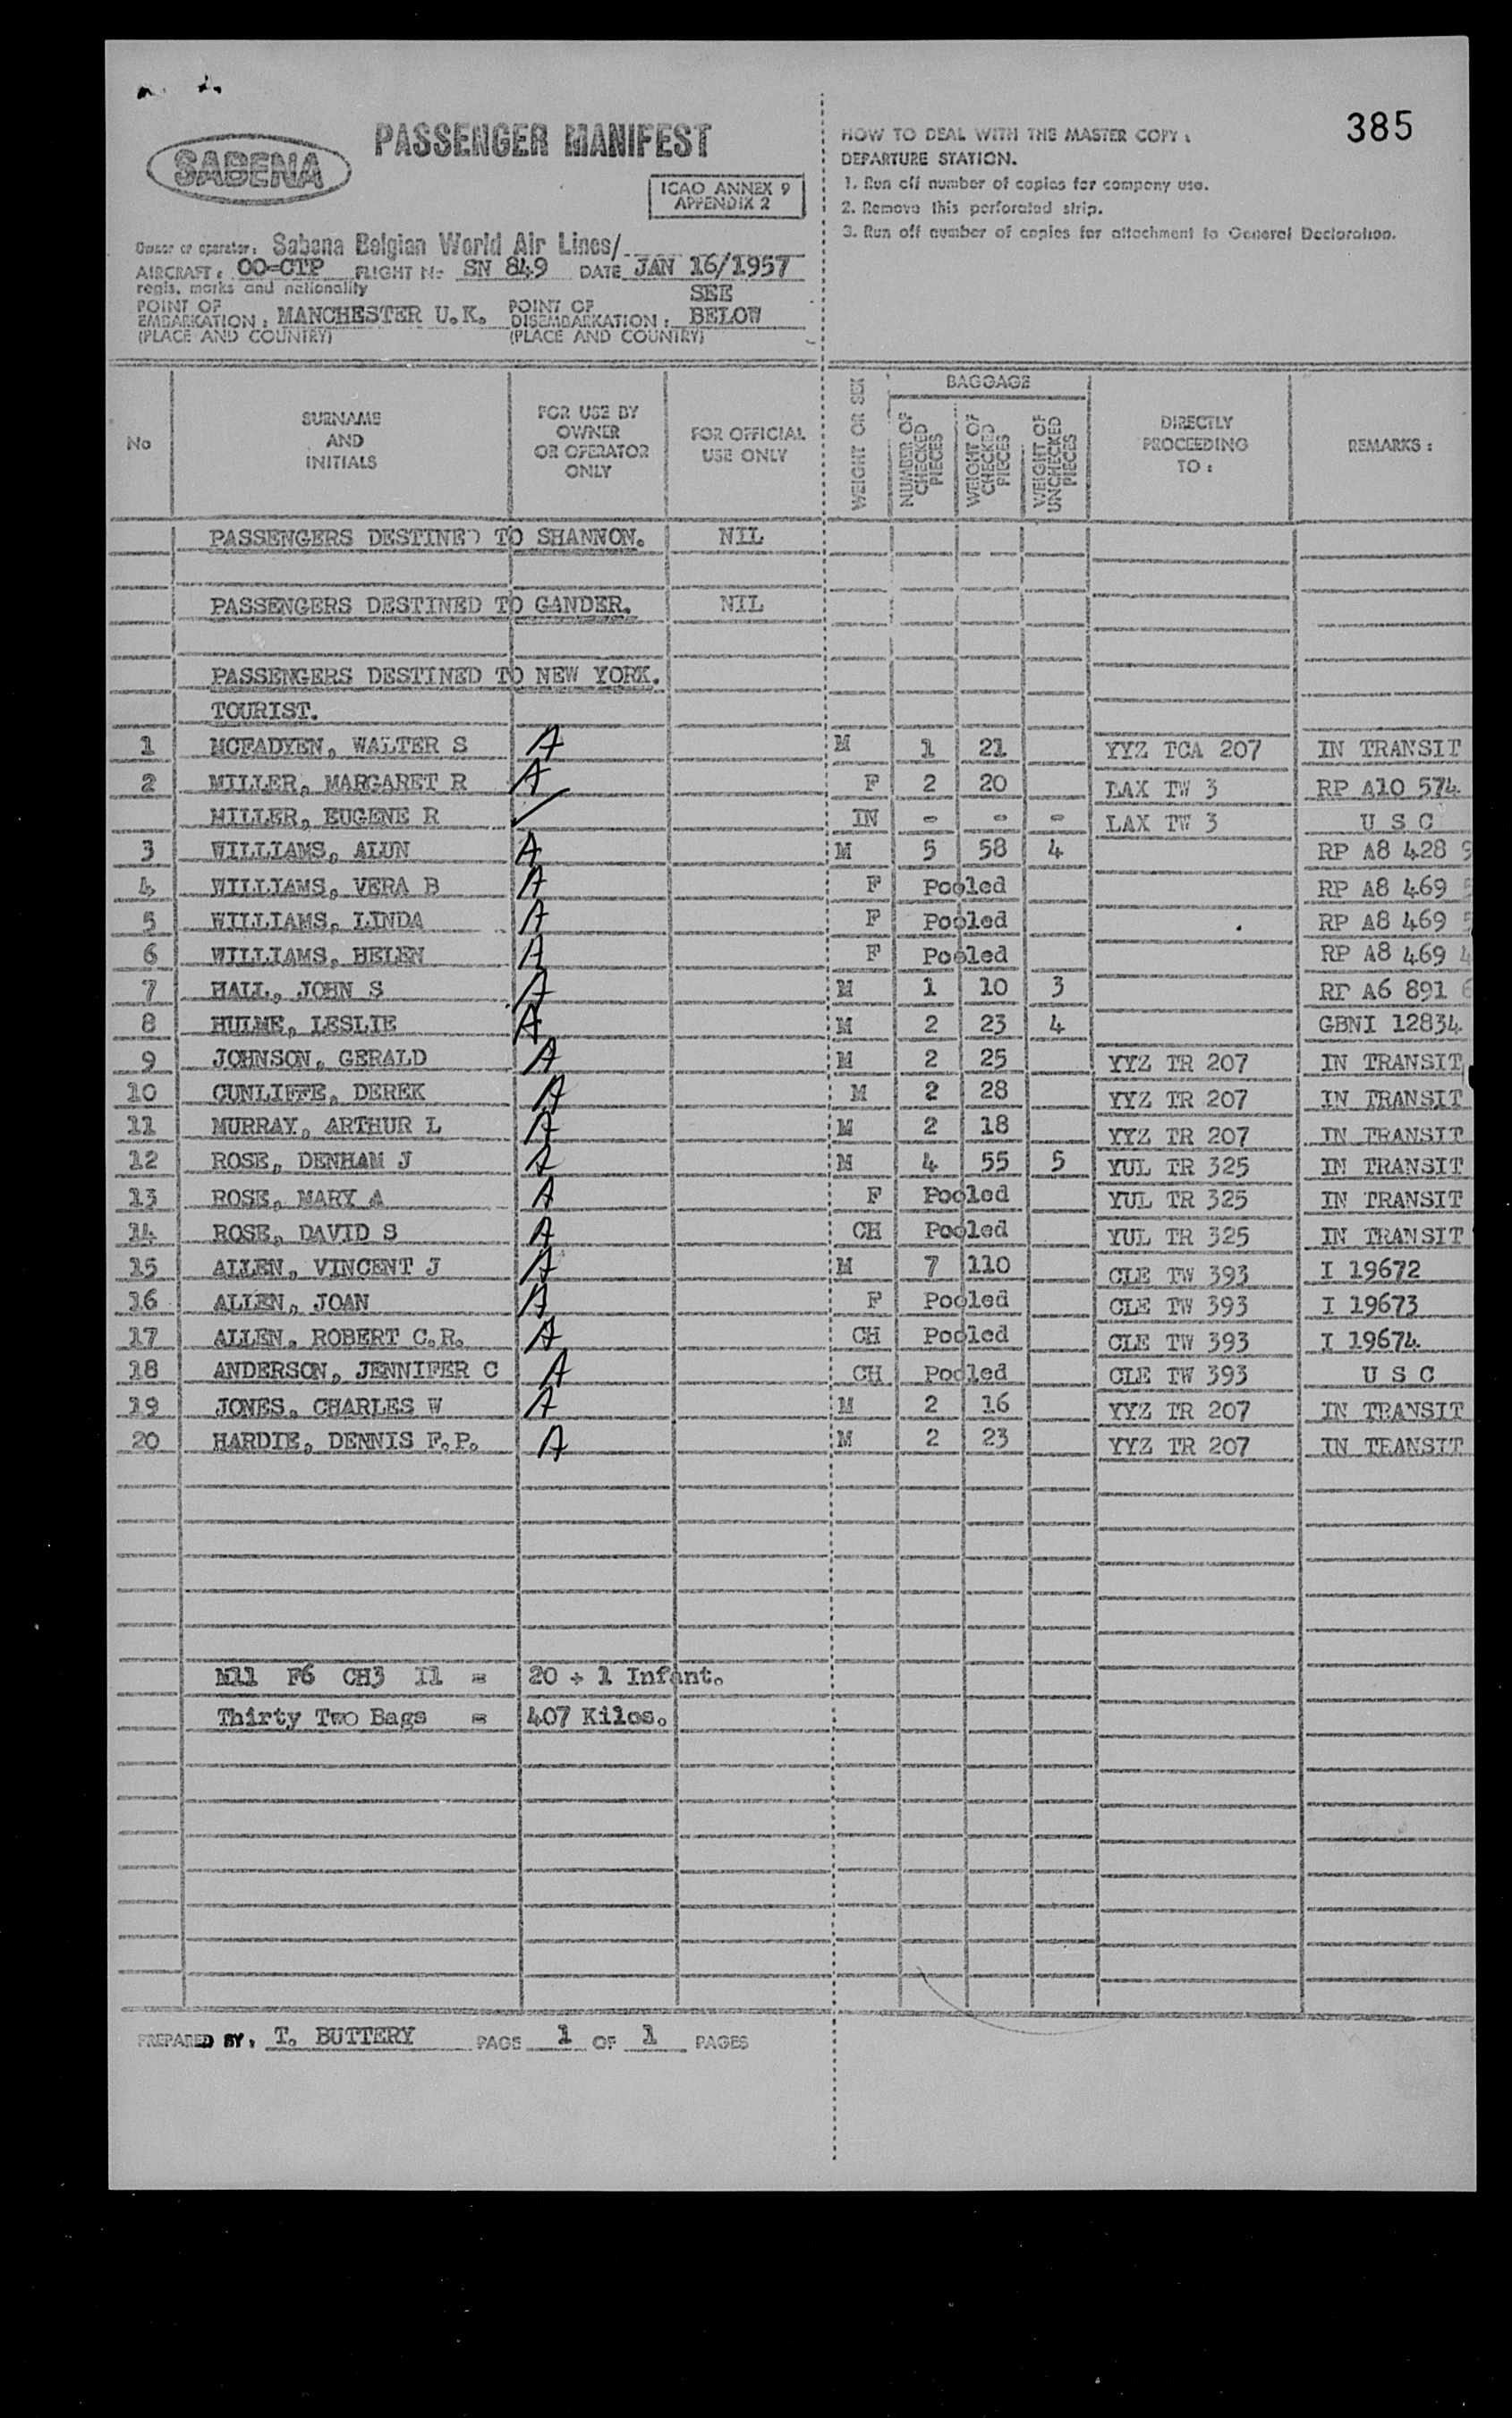 385
SABENA
PASSENGER MANIFEST
ICAO ANNEX 9
APPENDIX 2
HOW TO DEAL WITH THE MASTER COPY :
DEPARTURE STATION.
1. Run off number of copies for company use.
2. Remove this perforated strip.
3. Run off number of copies for attachment to General Declaration.
Owner or operator: Sabena Belgian World Air Lines/
AIRCRAFT : OO-CTP FLIGHT N: SN 849 DATE JAN 16/1957
regis. marks and nationality
POINT OF EMBARKATION : MANCHESTER U.K. POINT OF DISEMBARKATION : SEE BELOW
(PLACE AND COUNTRY) (PLACE AND COUNTRY)
No SURNAME AND INITIALS FOR USE BY OWNER OR OPERATOR ONLY FOR OFFICIAL USE ONLY WEIGHT OR SEX BAGGAGE NUMBER OF CHECKED PIECES WEIGHT OF CHECKED PIECES WEIGHT OF UNCHECKED PIECES DIRECTLY PROCEEDING TO : REMARKS :
PASSENGERS DESTINED TO SHANNON. NIL
PASSENGERS DESTINED TO GANDER. NIL
PASSENGERS DESTINED TO NEW YORK.
TOURIST.
1 MCFADYEN, WALTER S A M 1 21 YYZ TCA 207 IN TRANSIT
2 MILLER, MARGARET R A F 2 20 LAX TW 3 RP A10 574
MILLER, EUGENE R ✓ IN - - - LAX TW 3 U S C
3 WILLIAMS, ALUN A M 5 58 4 RP A8 428 9
4 WILLIAMS, VERA B A F Pooled RP A8 469 5
5 WILLIAMS, LINDA A F Pooled RP A8 469 5
6 WILLIAMS, HELEN A F Pooled RP A8 469 4
7 HALL, JOHN S A M 1 10 3 RP A6 891 6
8 HULME, LESLIE A M 2 23 4 GBNI 12834
9 JOHNSON, GERALD A M 2 25 YYZ TR 207 IN TRANSIT
10 CUNLIFFE, DEREK A M 2 28 YYZ TR 207 IN TRANSIT
11 MURRAY, ARTHUR L A M 2 18 YYZ TR 207 IN TRANSIT
12 ROSE, DENHAM J A M 4 55 5 YUL TR 325 IN TRANSIT
13 ROSE, MARY A A F Pooled YUL TR 325 IN TRANSIT
14 ROSE, DAVID S A CH Pooled YUL TR 325 IN TRANSIT
15 ALLEN, VINCENT J A M 7 110 CLE TW 393 I 19672
16 ALLEN, JOAN A F Pooled CLE TW 393 I 19673
17 ALLEN, ROBERT C.R. A CH Pooled CLE TW 393 I 19674
18 ANDERSON, JENNIFER C A CH Pooled CLE TW 393 U S C
19 JONES, CHARLES W A M 2 16 YYZ TR 207 IN TRANSIT
20 HARDIE, DENNIS F.P. A M 2 23 YYZ TR 207 IN TRANSIT
M11 F6 CH3 I1 = 20 + 1 Infant.
Thirty Two Bags = 407 Kilos.
PREPARED BY: T. BUTTERY PAGE 1 OF 1 PAGES